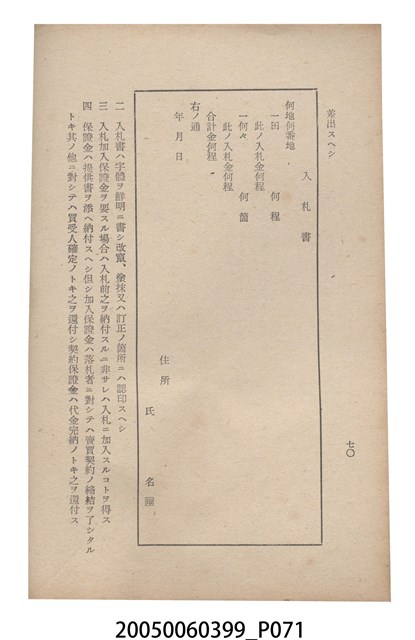 差出スヘシ
入札書
何地何番地
一田 何程
此ノ入札金何程
一何々 何箇
此ノ入札金何程
合計金何程
右ノ通
年月日
住所
氏名
七〇
二 入札書ハ字體ヲ鮮明ニ書シ改竄、塗抹又ハ訂正ノ箇所ニハ認印スヘシ
三 入札加入保證金ヲ要スル場合ハ入札前之ヲ納付スルニ非サレハ入札ニ加入スルコトヲ得ス
四 保證金ハ提供書ヲ添ヘ納付スヘシ但シ加入保證金ハ落札者ニ對シテハ賣買契約ノ締結ヲ了シタル
トキ其ノ他ニ對シテハ買受人確定ノトキ之ヲ還付シ契約保證金ハ代金完納ノトキ之ヲ還付ス
20050060399_P071